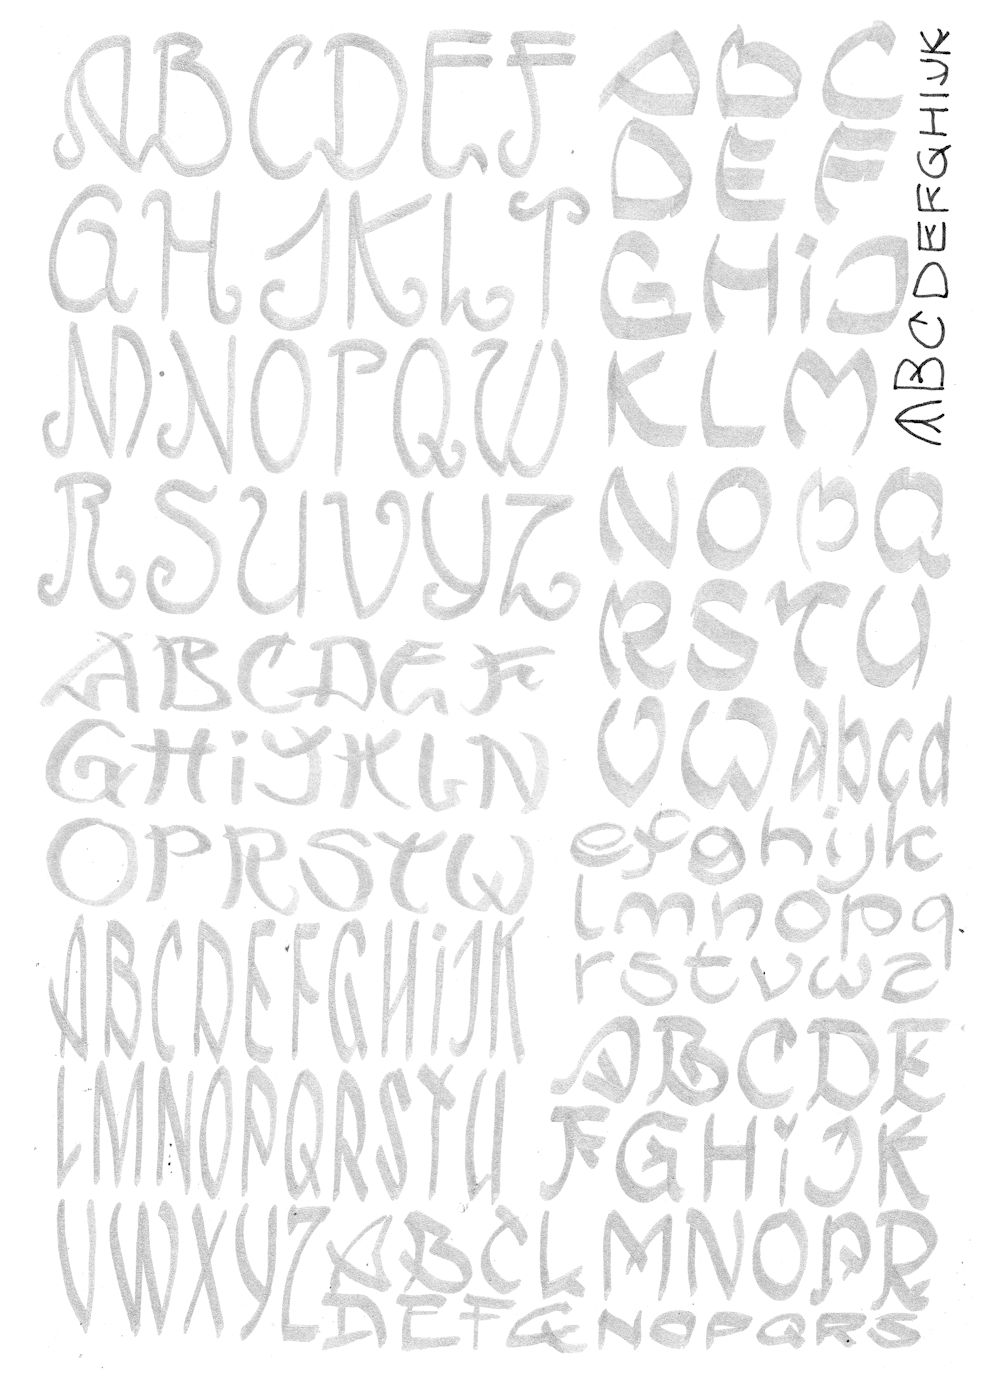 ABCDEF
GHJKLT
MNOPQW
RSUVYZ
ABCDEF
GHiJKLN
OPRSTW
ABCDEFGHiJK
LMNOPQRSTU
VWXYZ
ABC
DEFG
ABC
DEF
GHiJ
KLM
NOPQ
RSTU
VWabcd
efghijk
lmnopq
rstuvwz
ABCDE
FGHiJK
LMNOPR
NOPQRS
ABCDEFGHIJK